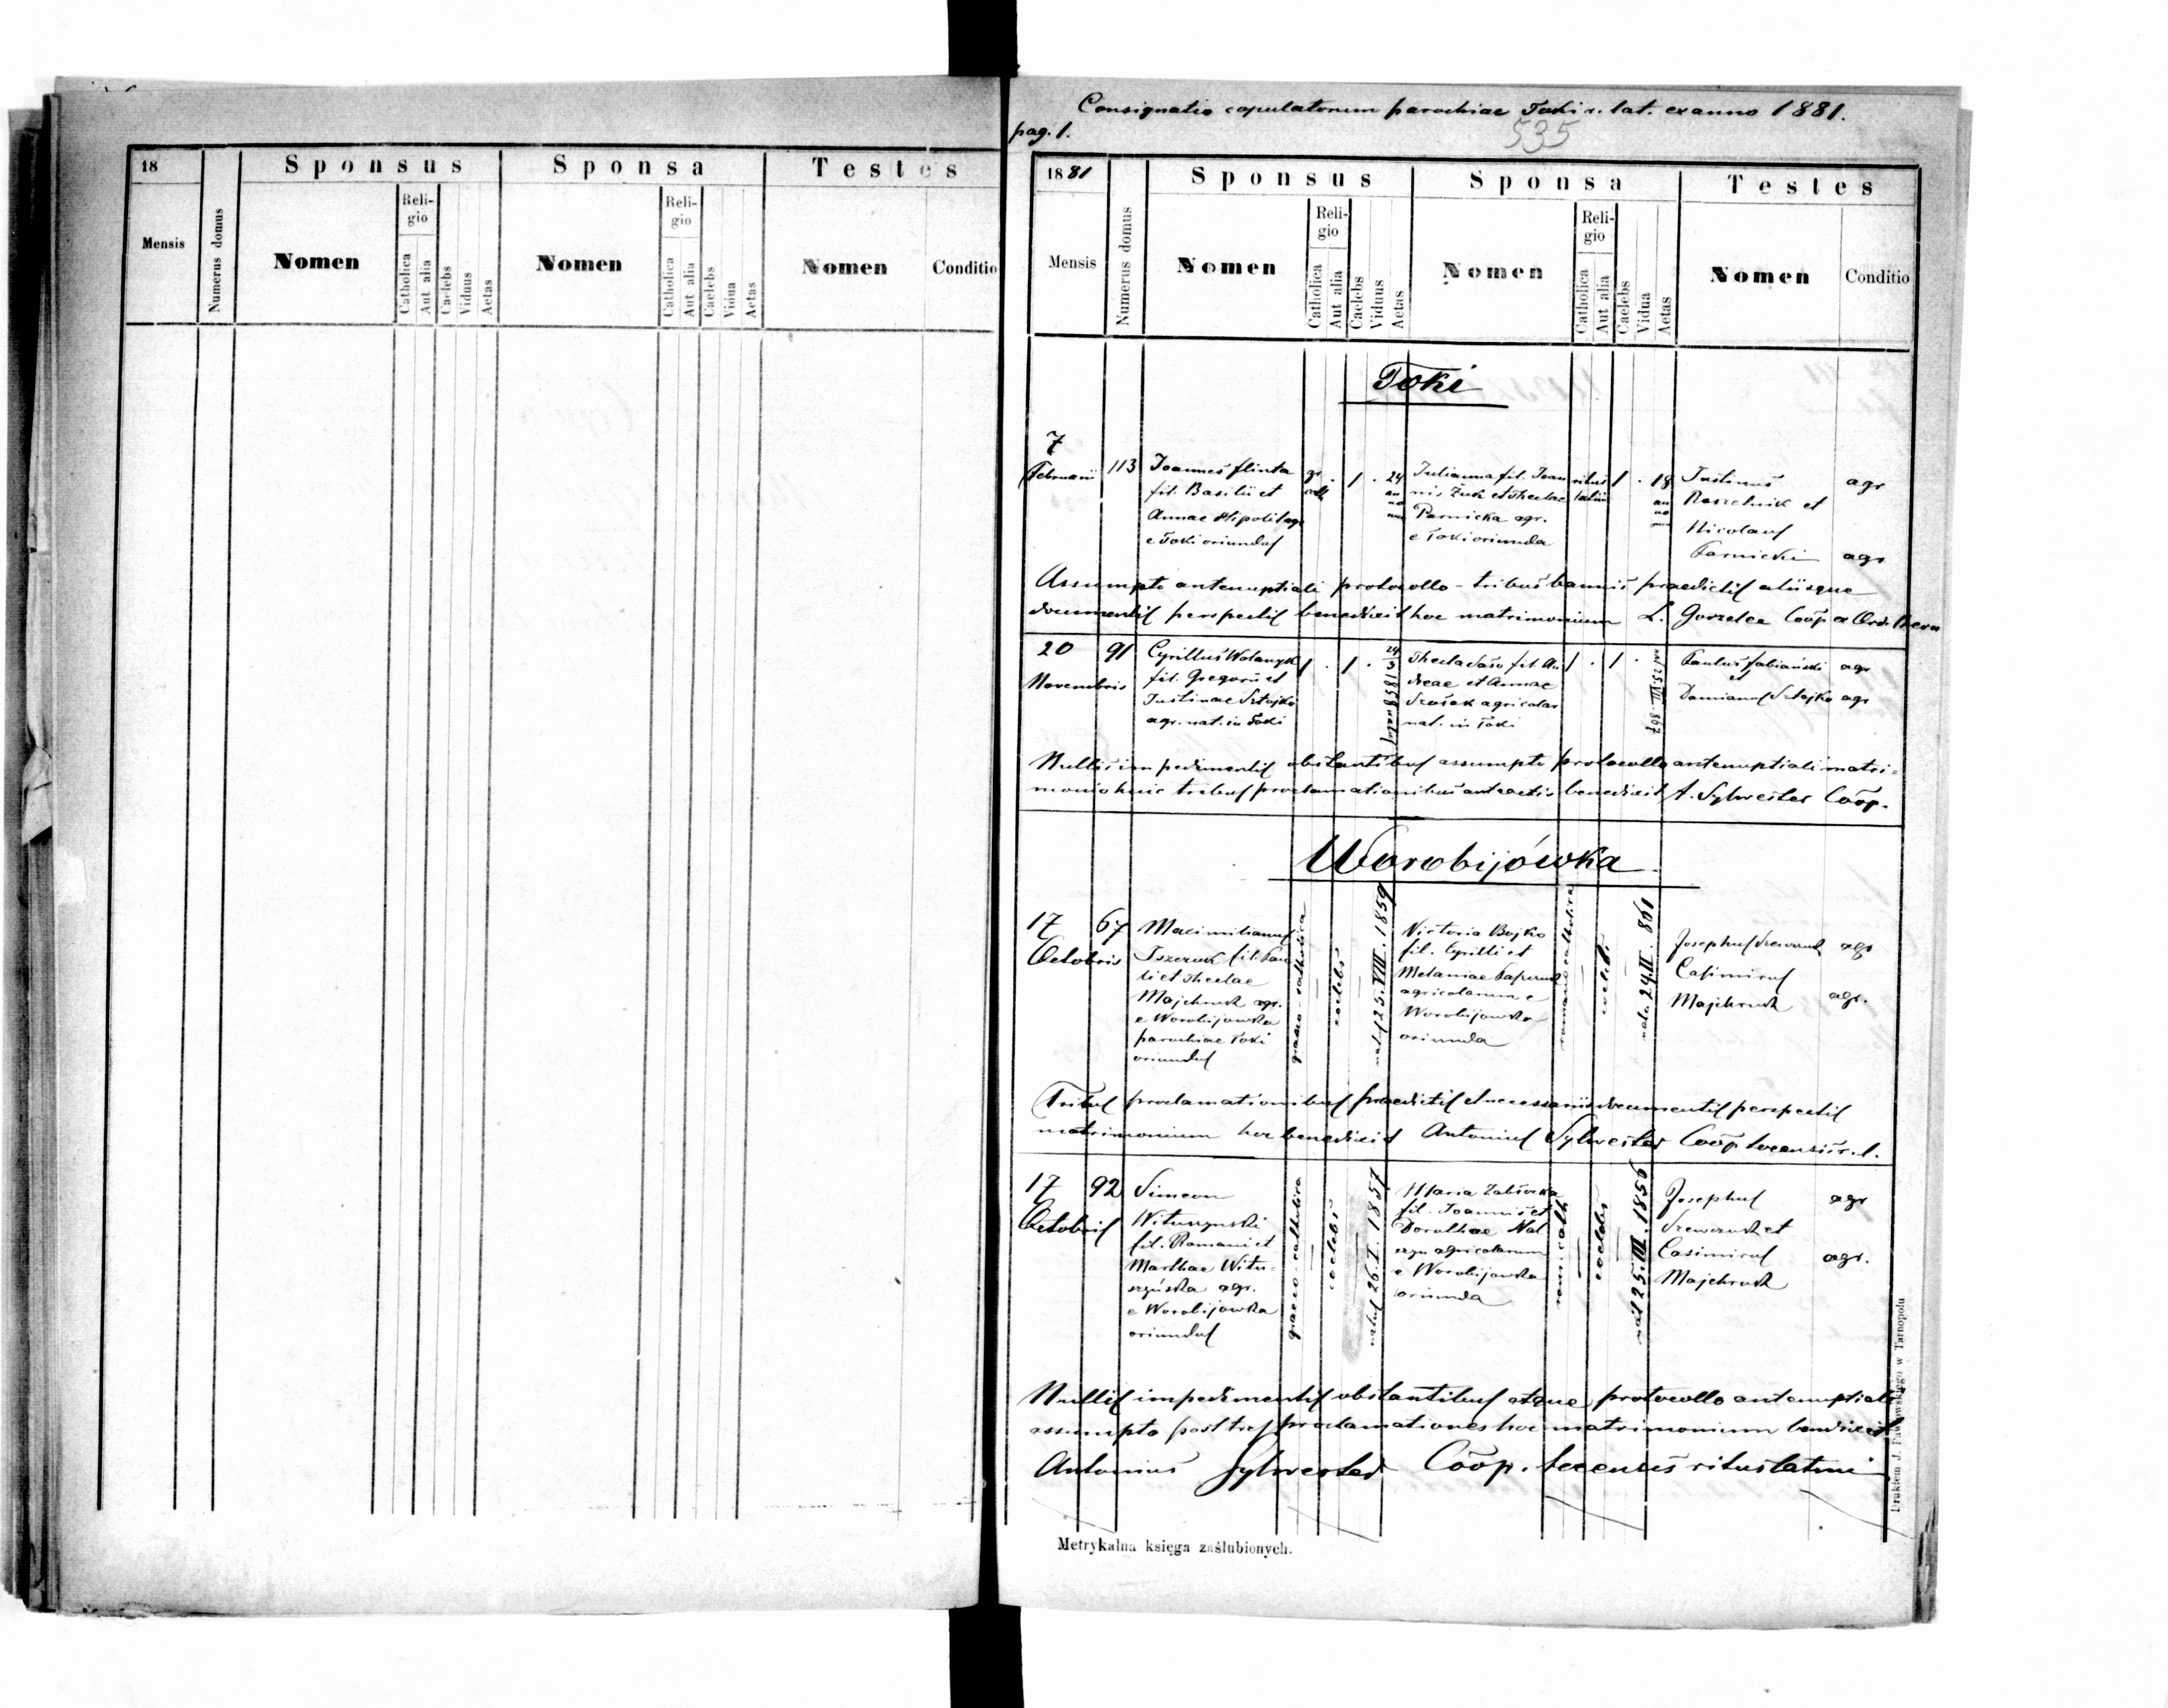 18
Sponsus
Sponsa
Testes
Mensis
Numerus domus
Nomen
Religio
Catholica
Aut alia
Caelebs
Viduus
Aetas
Nomen
Religio
Catholica
Aut alia
Caelebs
Vidua
Aetas
Nomen
Conditio
Consignatio copulatorum parochiae Toki r. lat. ex anno 1881.
pag. 1.
535
1881
Sponsus
Sponsa
Testes
Mensis
Numerus domus
Nomen
Religio
Catholica
Aut alia
Caelebs
Viduus
Aetas
Nomen
Religio
Catholica
Aut alia
Caelebs
Vidua
Aetas
Nomen
Conditio
Toki
7
Februarii
113
Joannes Slinta
fil. Basilii et
Annae Hipolit agr
e Toki oriundus
gr
cath
1
24
an
no
rum
Julianna fil. Joan
nis Żuk et Theclae
Parnicka agr.
e Toki oriunda
ritus
latini
1
18
an
no
rum
Justinus agr
Raszelnik et
Nicolaus
Parnicki agr
Assumpto antenuptiali protocollo - tribus bannis praedictis aliisque
documentis perspectis benedixit hoc matrimonium L. Gorzelec Coop ex Ord.
20
Novembris
91
Cyrillus Wolanyk
fil. Gregorii et
Justinae Sztojko
agr. nat. in Toki
1
1
24/3 1858 natus
Thecla Saso fil. An
dreae et Annae
Szosak agricolar
nat. in Toki
1
1
Paulus Fabiański agr
et
Damianus Sztojko agr
Nullis impedimentis obstantibus assumpto protocollo antenuptiali matri=
monio huic tribus proclamationibus anteactis benedixit A. Sylwester Coop.
Worobijówka
17
Octobris
67
Maximilianus
fil. Pau
li et Theclae
Majchruk agr.
e Worobijowka
parochiae Toki
oriundus
graeco-catholica
coelebs
natus 25. VIII. 1859
Victoria Bojko
fil. Cyrilli et
Melaniae
agricolarum e
Worobijowka
oriunda
romano catholica
coelebs
nata 24. II. 861
Josephus Szewczuk agr
Casimirus
Majchruk agr.
Tribus proclamationibus praedictis et necessariis documentis perspectis
matrimonium hoc benedixit Antonius Sylwester Coop tocensis r. l.
17
Octobris
92
Simeon
Wituszynski
fil. Romani et
Marthae Witu-
szyńska agr.
e Worobijowka
oriundus
graeco-catholica
coelebs
natus 26. I. 1857
Maria Zabłocka
fil. Joannis et
Dorotheae Nal
agricolarum
e Worobijowka
oriunda
rom. cath
coelebs
nat 25. III. 1856
Josephus agr
Szewczuk et
Casimirus agr.
Majchruk
Nullis impedimentis obstantibus atque protocollo antenuptiali
assumpto post tres proclamationes hoc matrimonium benedixit
Antonius Sylwester Coop. tocensis ritus latini
Metrykalna księga zaślubionych.
Drukiem J. Pawłowskiego w Tarnopolu